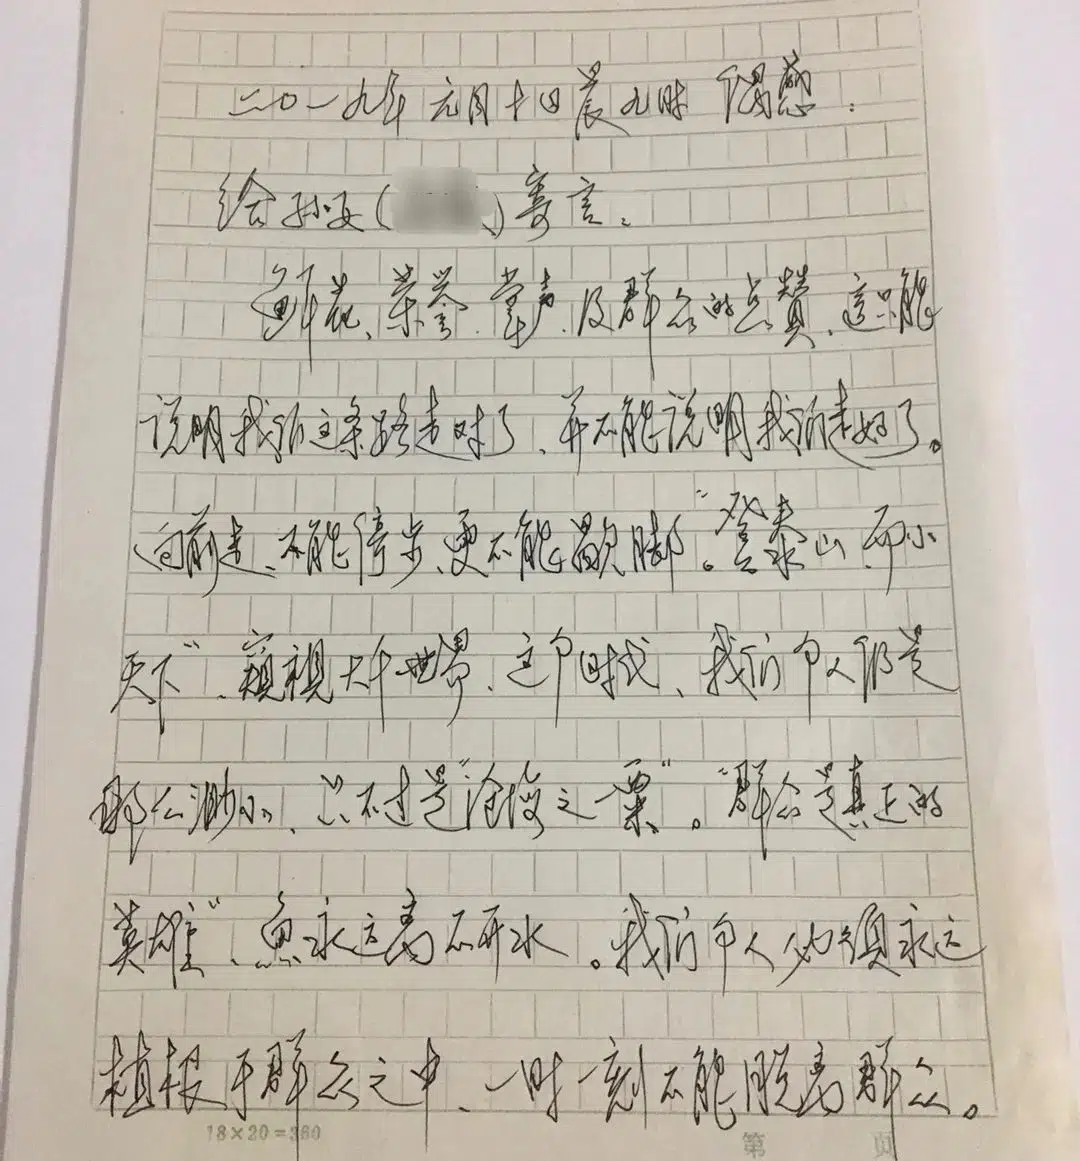 二〇一九年元月十四晨九时偶感:
给孙女()寄言。
鲜花、荣誉、掌声、及群众的点赞、这只能
说明我们这条路走对了、并不能说明我们走好了。
向前走、不能停步、更不能歇脚。“登泰山而小
天下”、窥视大千世界、这个时代、我们个人仍是
那么渺小、只不过是“沧海之一粟”。“群众是真正的
英雄”、鱼永远离不开水。我们个人必须永远
植根于群众之中、一时一刻不能脱离群众。
18×20=360
第 页